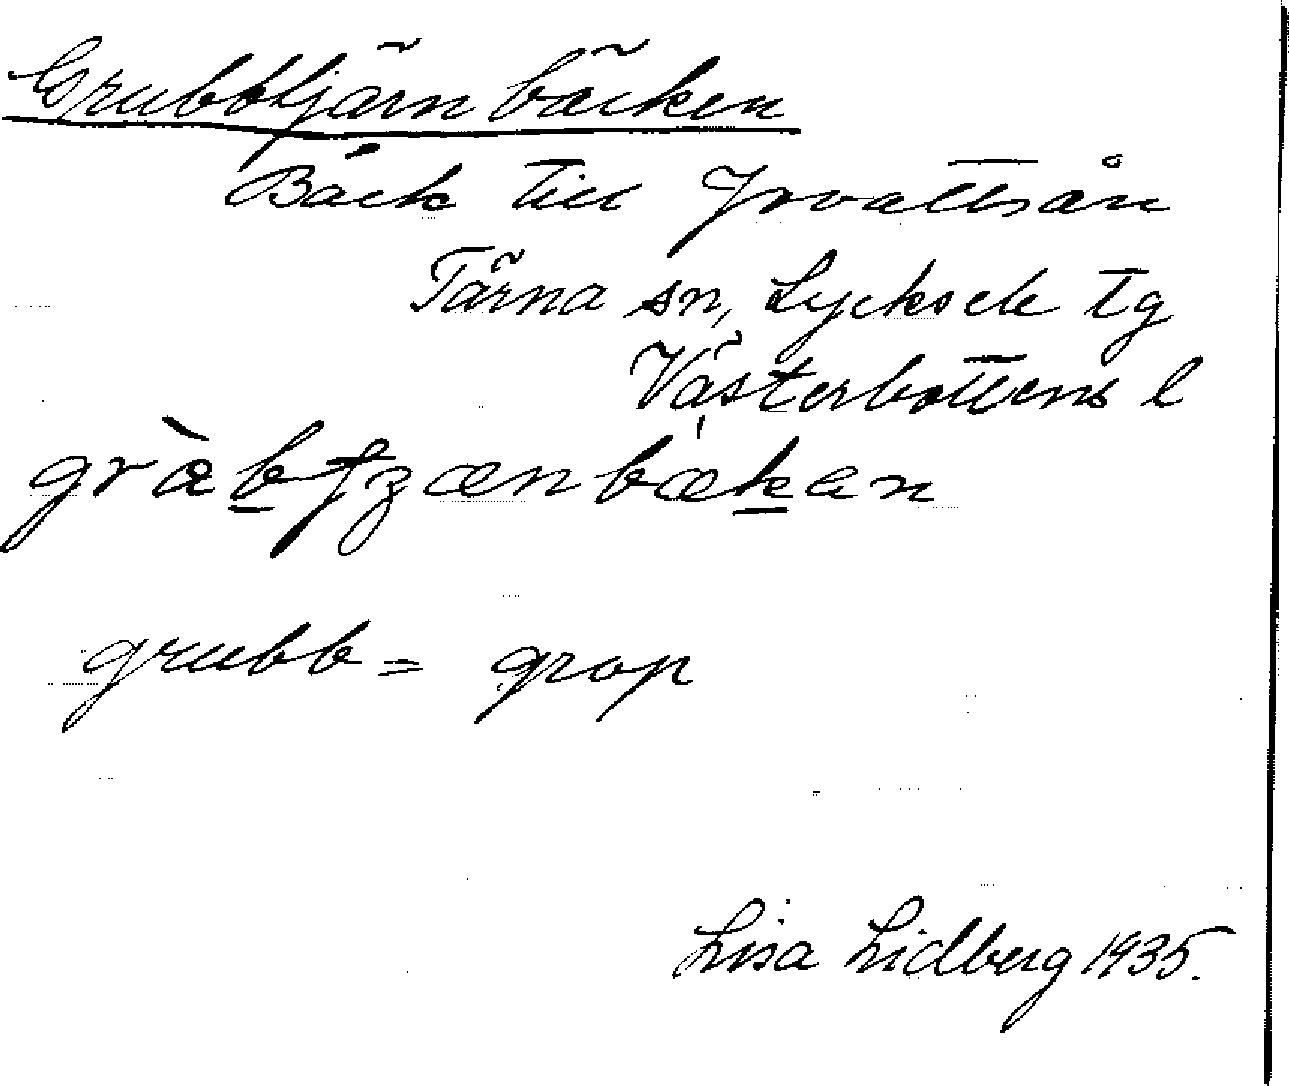 Grubbtjärnbäcken
Bäck till Jovattsån
Tärna sn, Lycksele tg
Västerbottens l
gràbtʒænbækan
grubb = grop
Lisa Lidberg 1935.